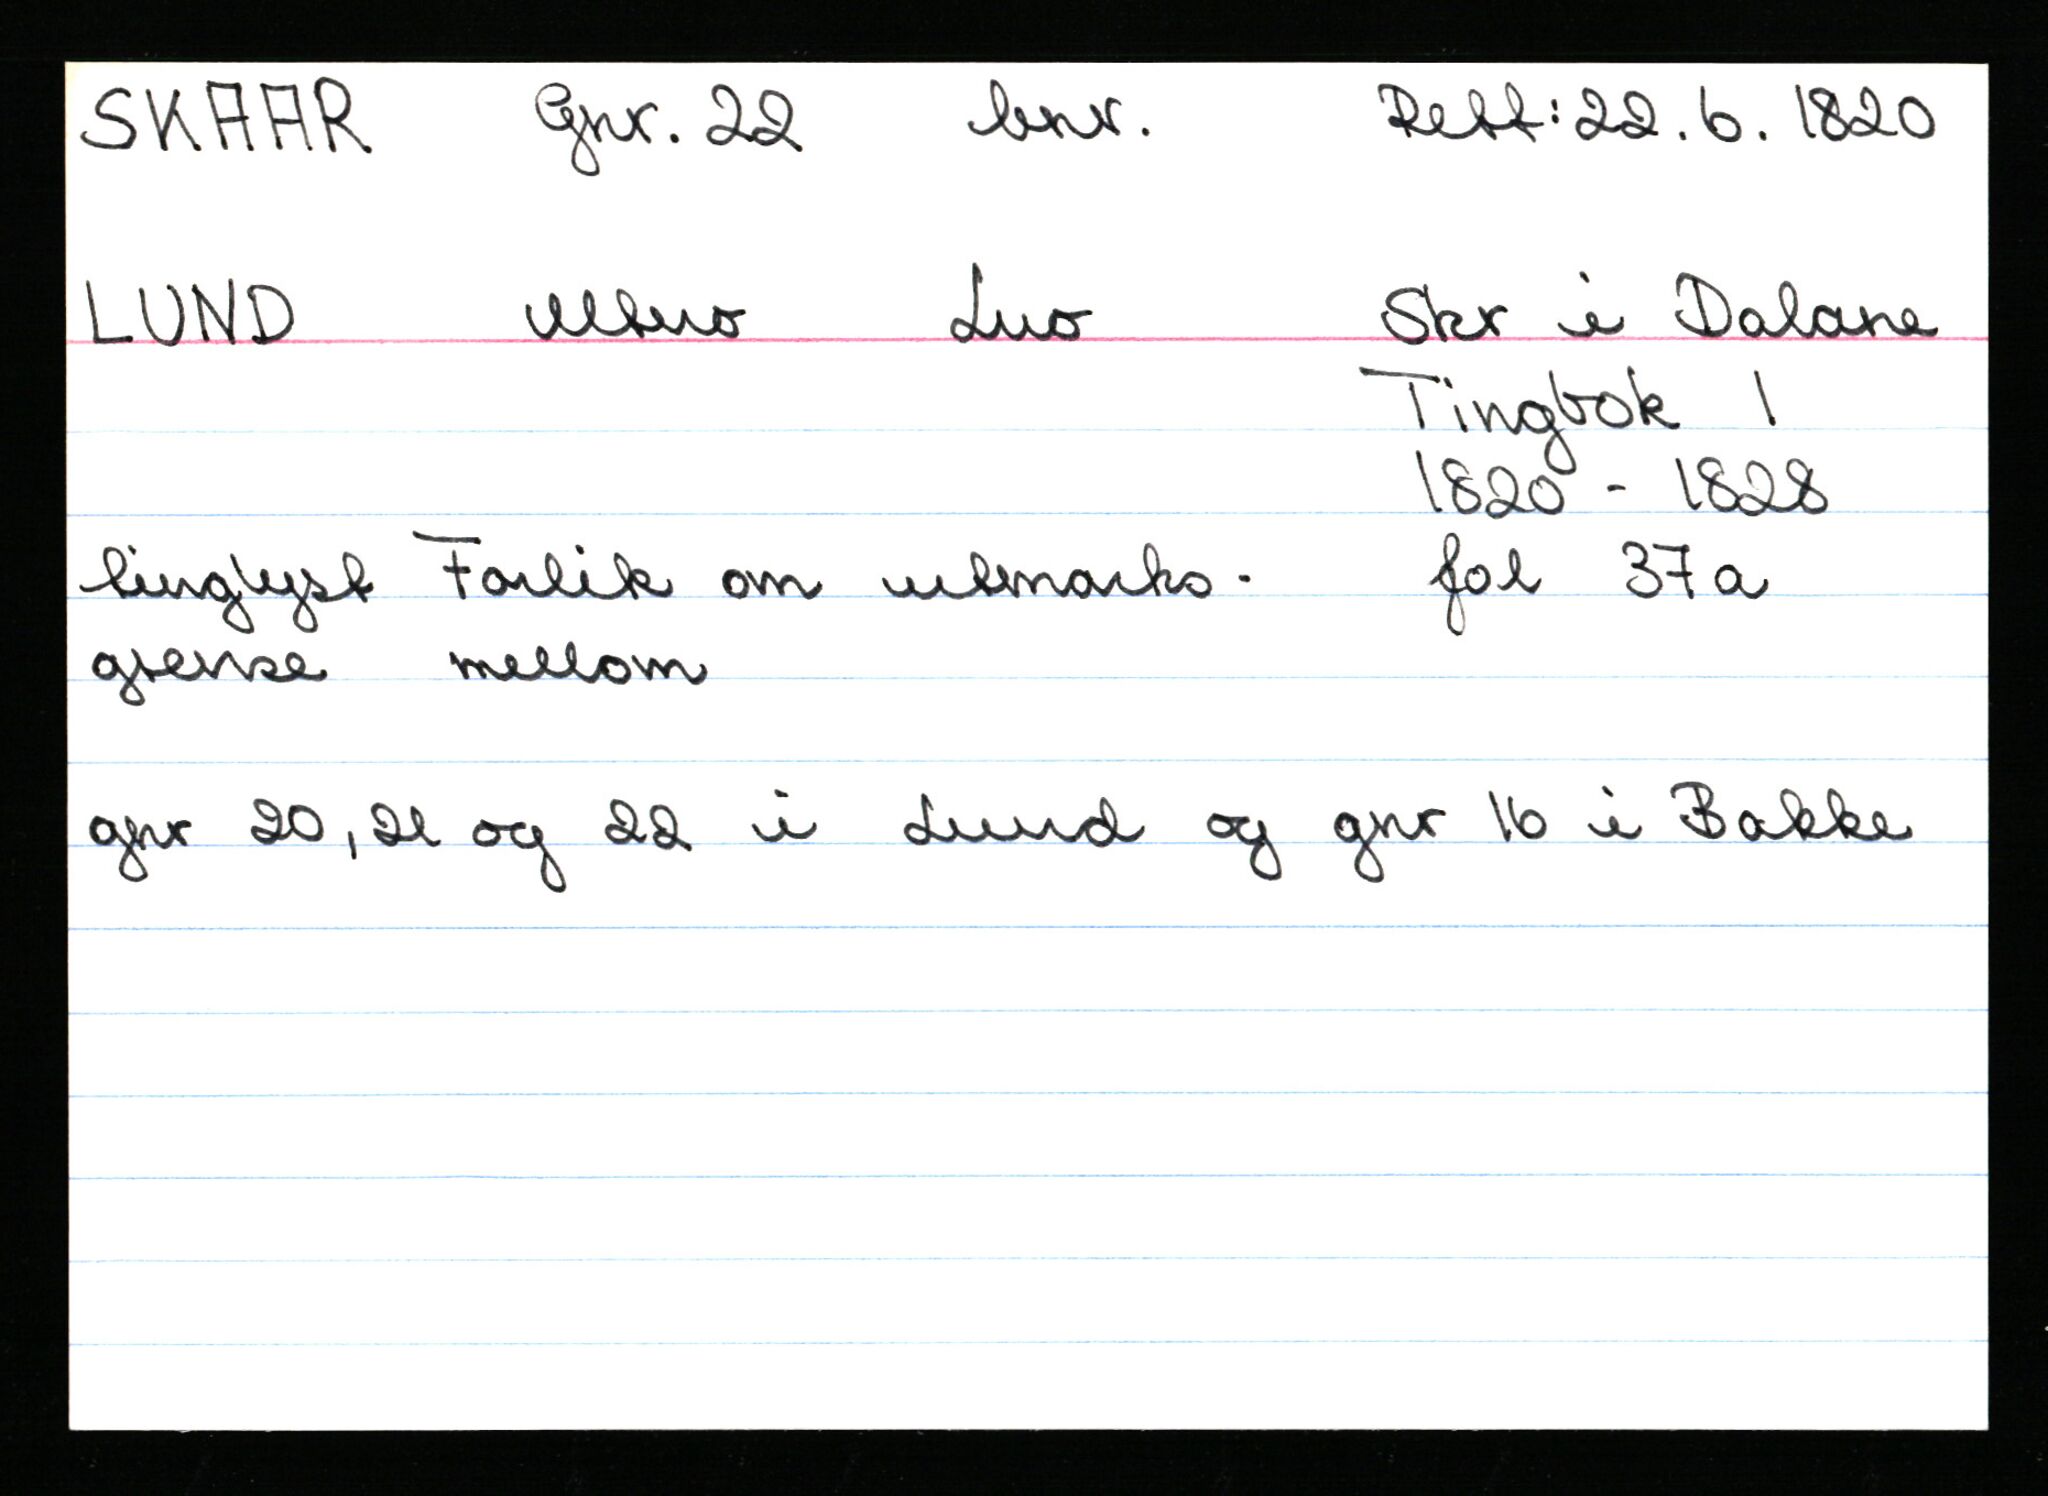 SKAAR Gnr. 22 bnr. Rett: 22.6.1820
LUND Skr i Dalane
Tingbok 1
1820 - 1828
tinglyst Forlik om utmarks- fol 37a
grense mellom
gnr 20, 21 og 22 i Lund og gnr 16 i Bakke